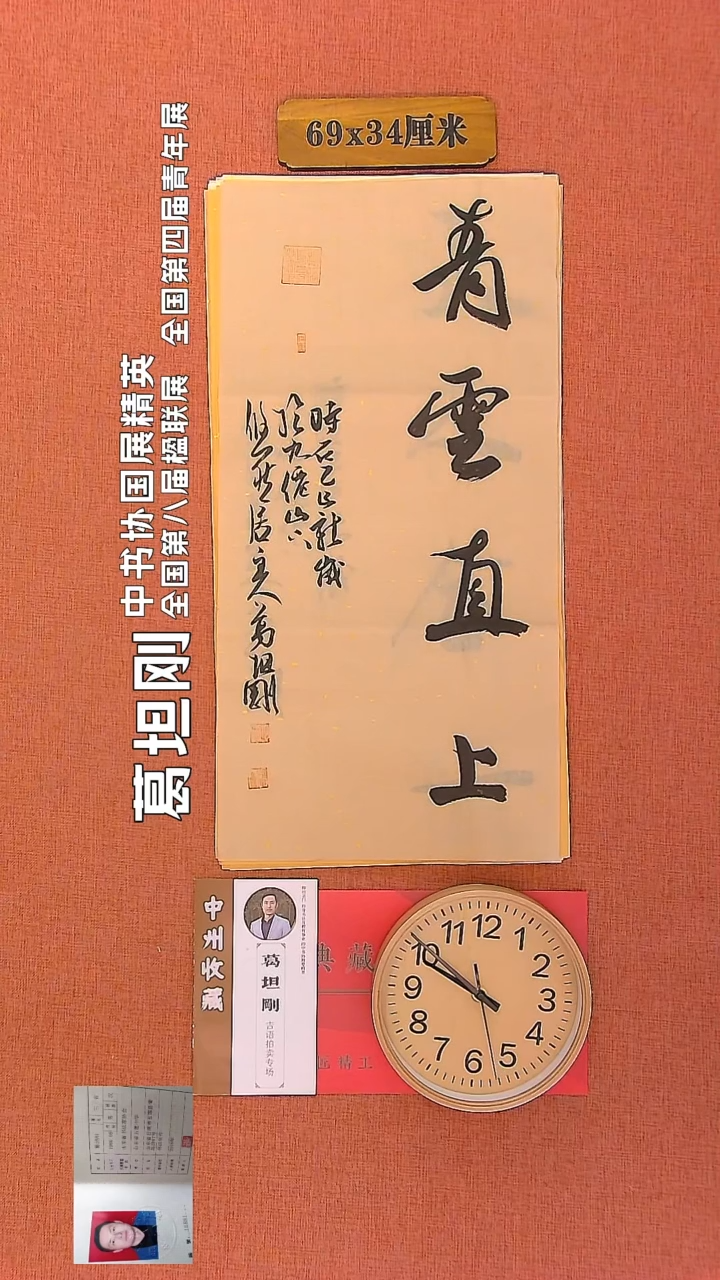 69x34厘米
青雲直上
時在乙巳社歲
於九僊山下
悠然居主人葛坦剛
葛坦刚
中书协国展精英
全国第八届楹联展 全国第四届青年展
中
藏
葛坦剛
古语拍卖专场
典藏
12
1
2
3
4
5
6
7
8
9
10
11